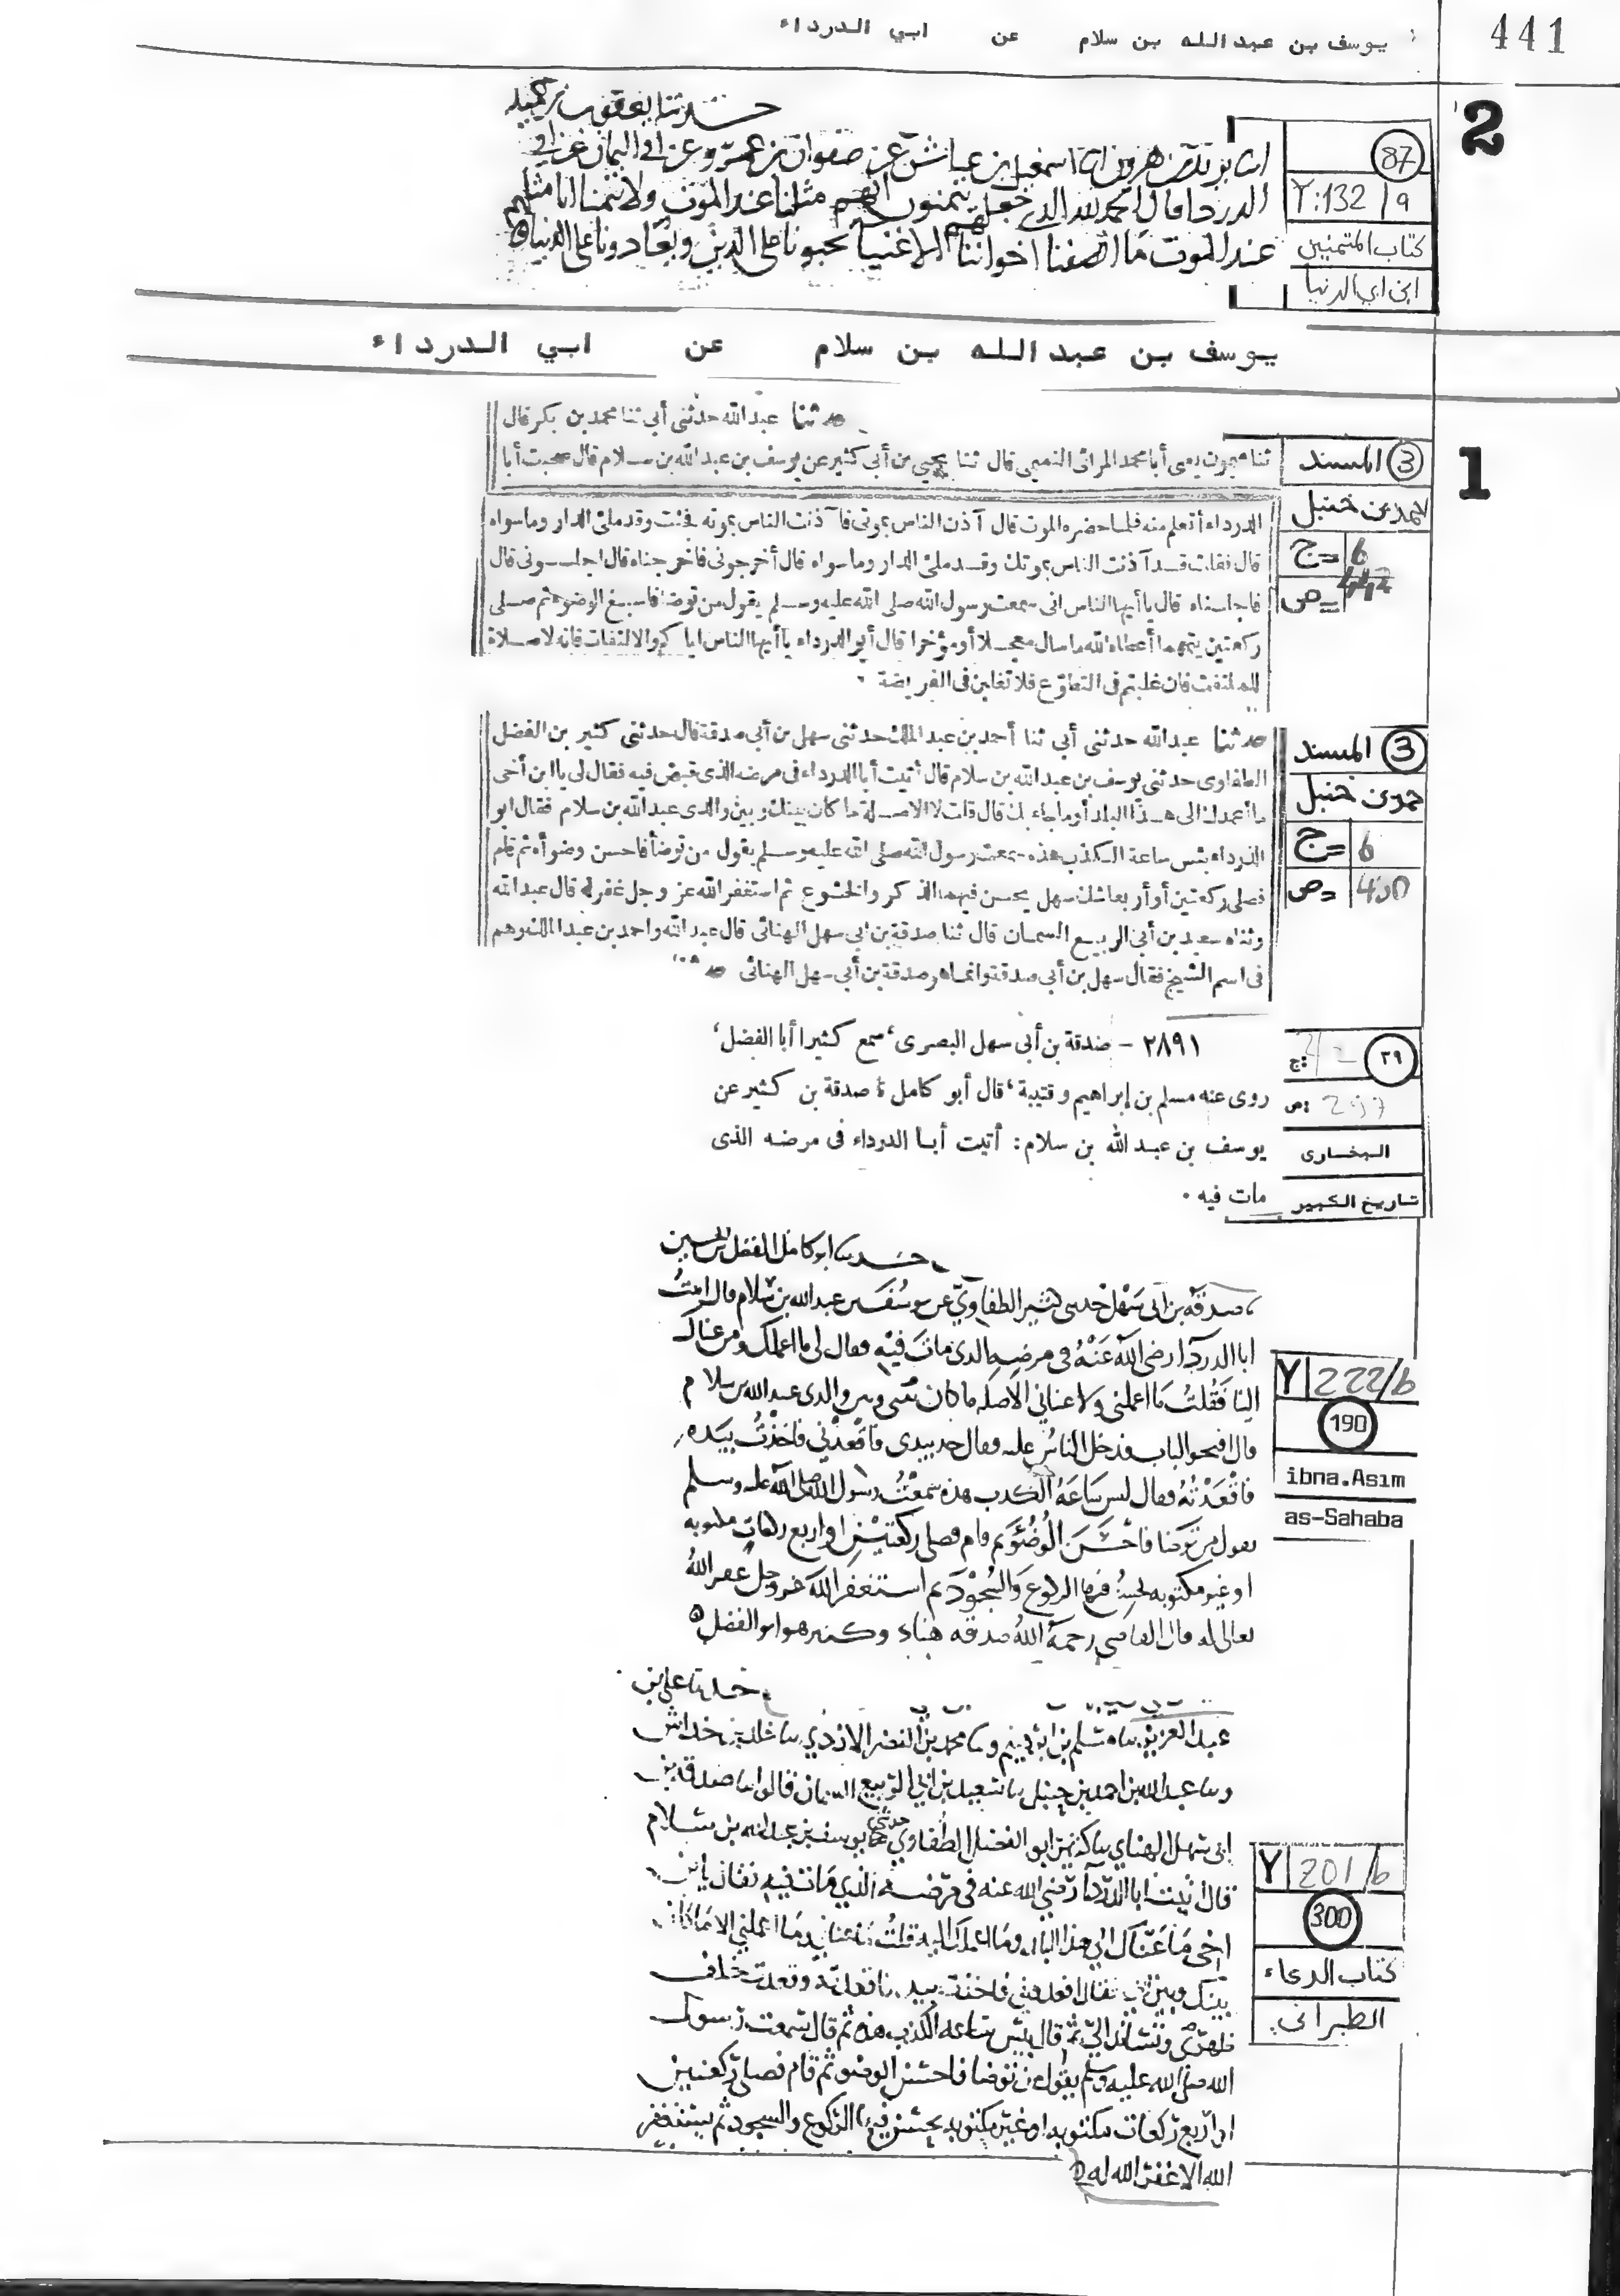 441
يوسف بن عبد الله بن سلام عن ابي الدرداء
2
حدثنا يعقوب بن عبيد
87
Y:132/a
كتاب المتمنين
ابن ابي الدنيا
يزيد بن هرون اسمعيل بن عياش عن صفوان بن عمرو عن ابي اليمان عن ابي
الدرداء قال الحمد لله الذي جعلهم يتمنون انهم مثلنا عند الموت ولا نتمنا انا مثلهم
عند الموت ما انصفنا اخواننا الاغنيا يحبونا على الدين ويعادونا على الدنيا
يوسف بن عبد الله بن سلام عن ابي الدرداء
1
3 المسند
احمد بن حنبل
ج= 6
ص= 442
حدثنا عبدالله حدثنى أبى ثنا محمد بن بكر قال
ثنا ميمون يعنى أبا محمد المرائى التميمى قال ثنا يحيى بن أبى كثير عن يوسف بن عبد الله بن سلام قال صحبت أبا
الدرداء أتعلم منه فلما حضره الموت قال آذن الناس بموتى فآذنت الناس بموته فجئت وقد ملئ الدار وما سواه
قال فقلت قد آذنت الناس بموتك وقد ملئ الدار وما سواه قال أخرجونى فاخرجناه قال اجلسونى قال
فاجلسناه قال يا أيها الناس انى سمعت رسول الله صلى الله عليه وسلم يقول من توضأ فاسبغ الوضوء ثم صلى
ركعتين يتمهما أعطاه الله ما سال معجلا أو مؤخرا قال أبو الدرداء يا أيها الناس اياكم والالتفات فانه لا صلاة
للملتفت فان غلبتم فى التطوّع فلا تغلبن فى الفريضة
3 المسند
احمد بن حنبل
ج= 6
ص= 450
حدثنا عبدالله حدثنى أبى ثنا أحمد بن عبد الملك حدثنى سهل بن أبى صدقة قال حدثنى كثير بن الفضل
الطفاوى حدثنى يوسف بن عبدالله بن سلام قال أتيت أبا الدرداء فى مرضه الذى قبض فيه فقال لى يا ابن أخى
ما أعمدك الى هذا البلد أو ما جاء بك قال قلت لا الا صلة ما كان بينك وبين والدى عبدالله بن سلام فقال ابو
الدرداء بئس ساعة الكذب هذه سمعت رسول الله صلى الله عليه وسلم يقول من توضأ فاحسن وضوأه ثم قام
فصلى ركعتين أو أربعا شك سهل يحسن فيهما الذكر والخشوع ثم استغفر الله عز وجل غفر له قال عبد الله
وثناه سعيد بن أبى الربيع السمان قال ثنا صدقة بن ابى سهل الهنائى قال عبد الله واحمد بن عبد الملك وهم
فى اسم الشيخ فقال سهل بن أبى صدقة وانما هو صدقة بن أبى سهل الهنائى
٢٩
ج:
ص: 297
البخارى
تاريخ الكبير
٢٨٩١ - صدقة بن أبى سهل البصرى، سمع كثيرا أبا الفضل،
روى عنه مسلم بن إبراهيم و قتيبة، قال أبو كامل: صدقة بن كثير عن
يوسف بن عبد الله بن سلام: أتيت أبا الدرداء فى مرضه الذى
مات فيه .
حدثنا ابو كامل الفضل بن الحسين
صدقة بن ابى سهل حدثنى كثير الطفاوي عن يوسف بن عبدالله بن سلام قال اتيت
ابا الدردآ رضى الله عنه فى مرضه الذى مات فيه فقال لى ما اعملك ومن عناك
الينا فقلت ما اعملنى ولا عناني الا صلة ما كان بينى وبين والدى عبد الله بن سلام
Y|222/b
190
ibna.Asım
as-Sahaba
قال افتحو الباب فدخل الناس عليه فقال خذ بيدى فاقعدني فاخذت بيده
فاقعدته فقال لبئس ساعة الكذب هذه سمعت رسول الله صلى الله عليه وسلم
يقول من توضا فاحسن الوضوء ثم قام فصلى ركعتين او اربع ركعات مكتوبه
او غير مكتوبه يحسن فيها الركوع والسجود ثم استغفر الله عز وجل غفر الله
تعالى له قال القاضى رحمه الله صدقه هناء وكثير هو ابو الفضل
حدثنا على بن
عبد العزيز ثنا مسلم بن ابراهيم وثنا محمد بن النضر الازدي ثنا خلد بن خداش
وثنا عبدالله بن احمد بن حنبل ثنا سعيد بن ابي الربيع السمان قالوا ثنا صدقة بن
ابى سهل الهناي ثنا كثير ابو الفضل الطفاوي حدثني يوسف بن عبدالله بن سلام
قال اتيت ابا الدردآ رضي الله عنه فى مرضه الذي مات فيه فقال يا ابن
Y|201/b
300
كتاب الدعاء
الطبراني
اخي ما عناك الي هذا البلد وما اعملك اليه قلت ما عناني وما اعملني الا ما كان
بينك وبين ابي فقال اقعدوني فاخذت بيده فاقعدته وقعدت خلف
ظهره وتساند الىّ ثم قال بئس ساعة الكذب هذه ثم قال سمعت رسول
الله صلى الله عليه وسلم يقول من توضا فاحسن الوضو ثم قام فصلى ركعتين
او اربع ركعات مكتوبه او غير مكتوبه يحسن فيها الركوع والسجود ثم يستغفر
الله الا غفر الله له